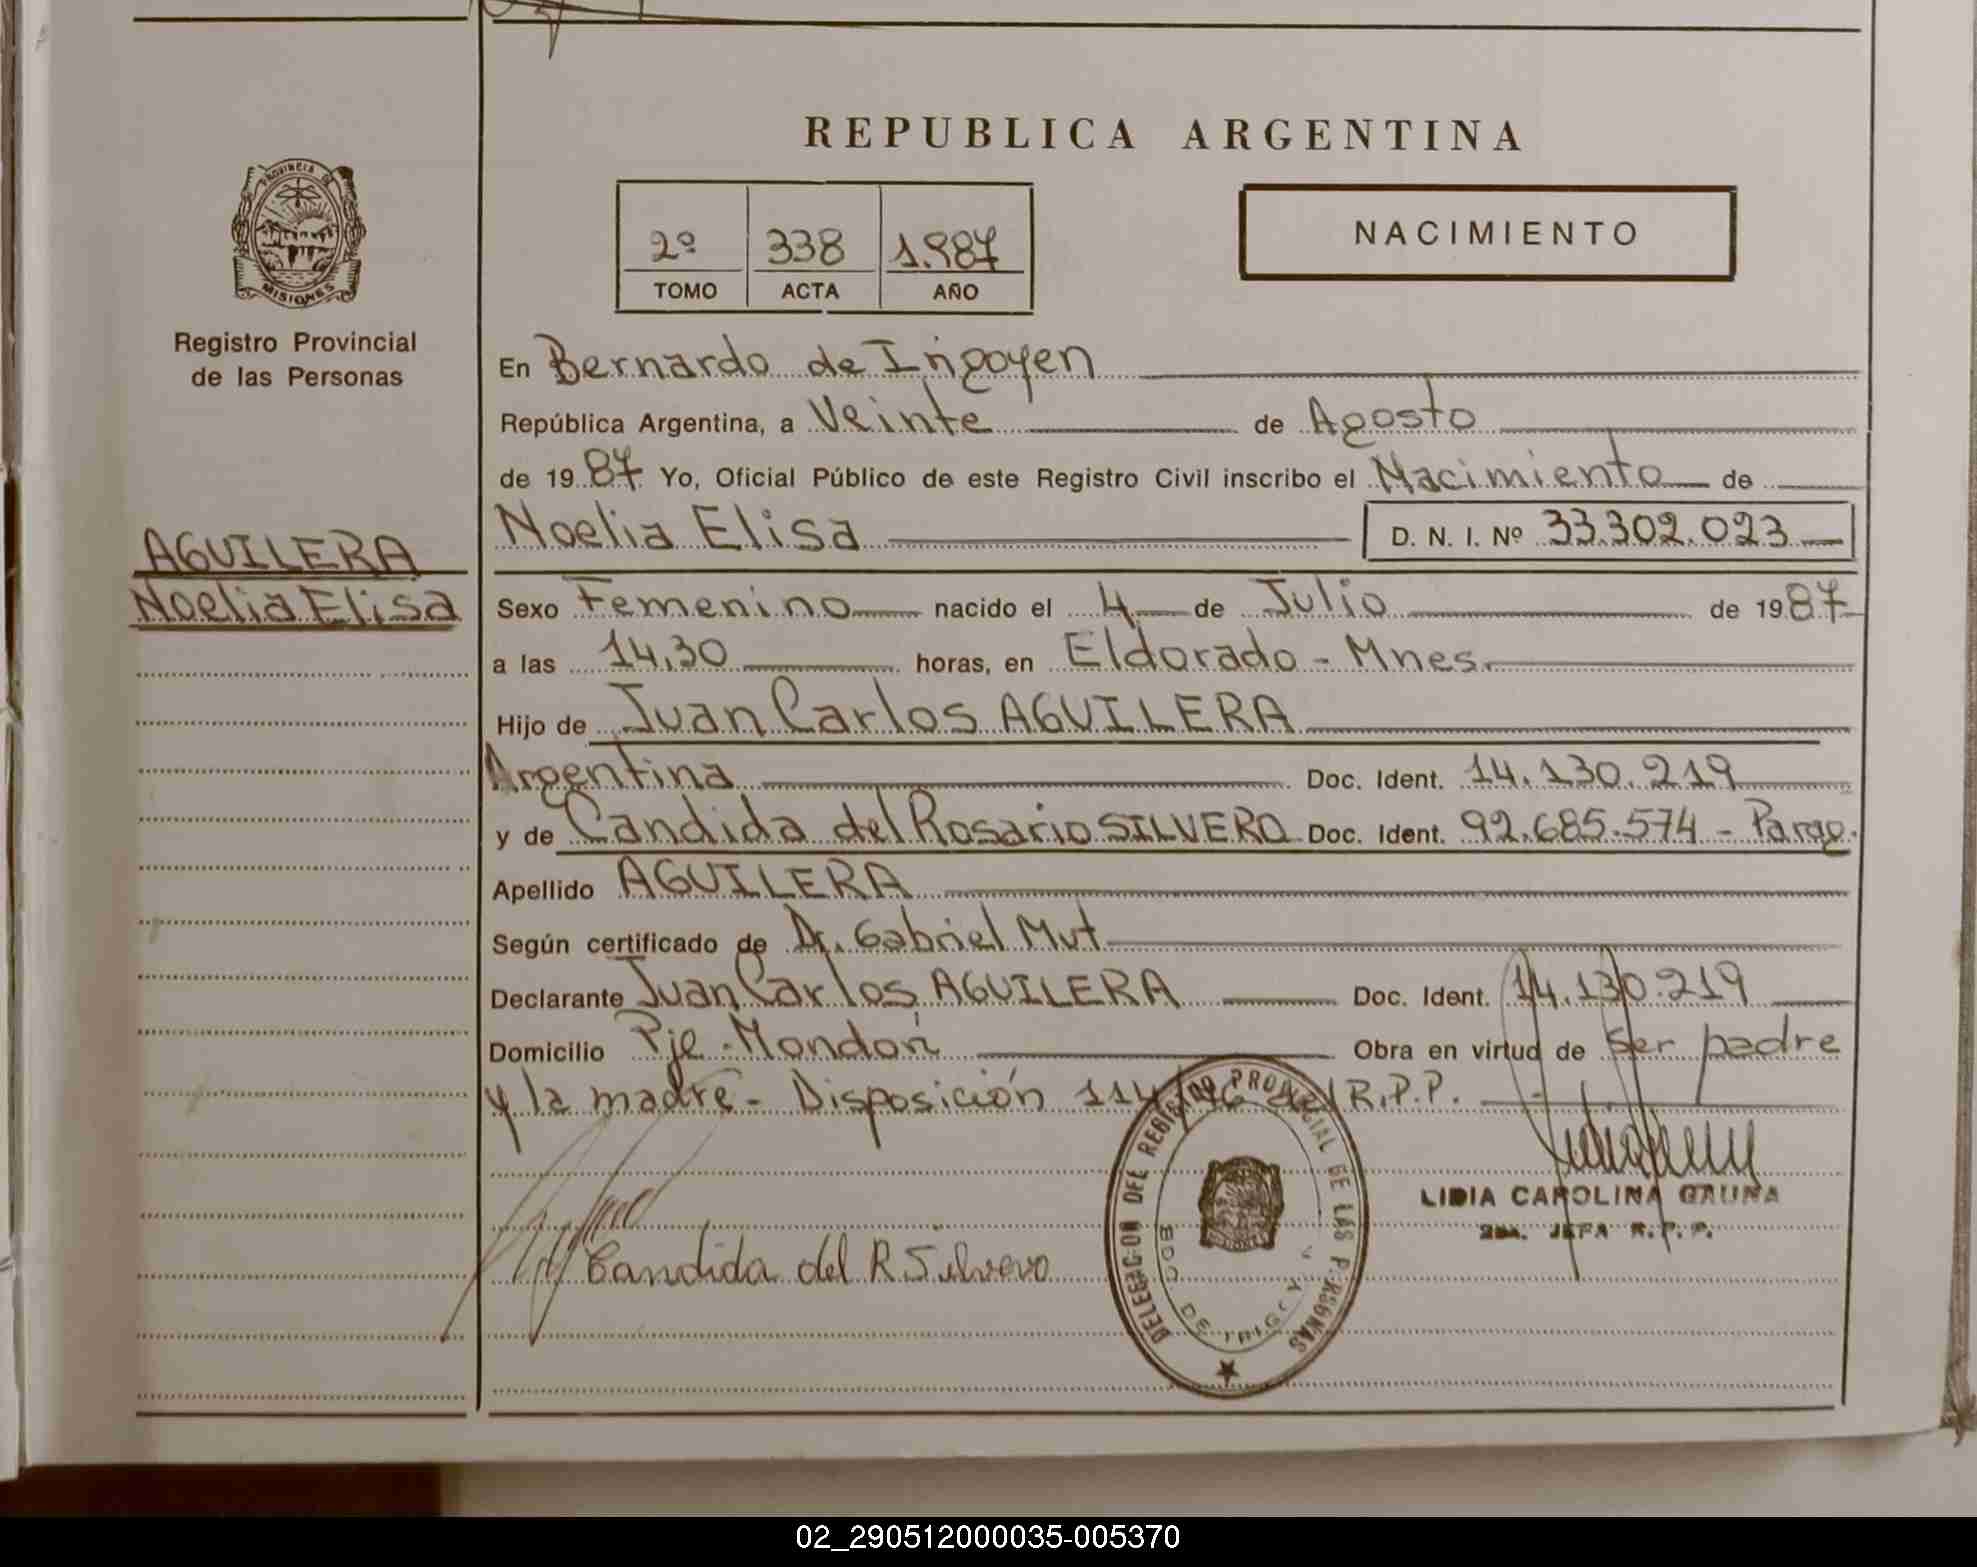 REPUBLICA ARGENTINA
PROVINCIA DE
MISIONES
Registro Provincial
de las Personas
2º 338 1.987
TOMO ACTA AÑO
NACIMIENTO
En Bernardo de Irigoyen
República Argentina, a Veinte de Agosto
de 19 87 Yo, Oficial Público de este Registro Civil inscribo el Nacimiento de
Noelia Elisa D. N. I. Nº 33.302.023
AGUILERA
Noelia Elisa
Sexo Femenino nacido el 4 de Julio de 19 87
a las 14,30 horas, en Eldorado - Mnes.
Hijo de Juan Carlos AGUILERA
Argentina Doc. Ident. 14.130.219
y de Candida del Rosario SILVERO Doc. Ident. 92.685.574 - Parag.
Apellido AGUILERA
Según certificado de Dr. Gabriel Mut
Declarante Juan Carlos AGUILERA Doc. Ident. 14.130.219
Domicilio Pje. Mondorí Obra en virtud de ser padre
y la madre - Disposición R.P.P.
Candida del R Silvero
DELEGACION DEL REGISTRO PROVINCIAL DE LAS PERSONAS
BDO. DE IRIGOYEN
LIDIA CAROLINA GAUNA
2da. JEFA R.P.P.
02_290512000035-005370